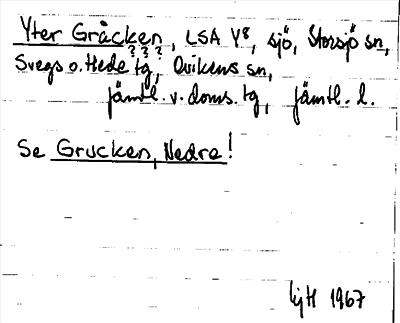 Yter Gråcken, LSA Y8, sjö, Storsjö sn,
Svegs o. Hede ??? tg, Ovikens sn,
jämtl. v. doms. tg, jämtl. l.
Se Grucken, Nedre!
1967